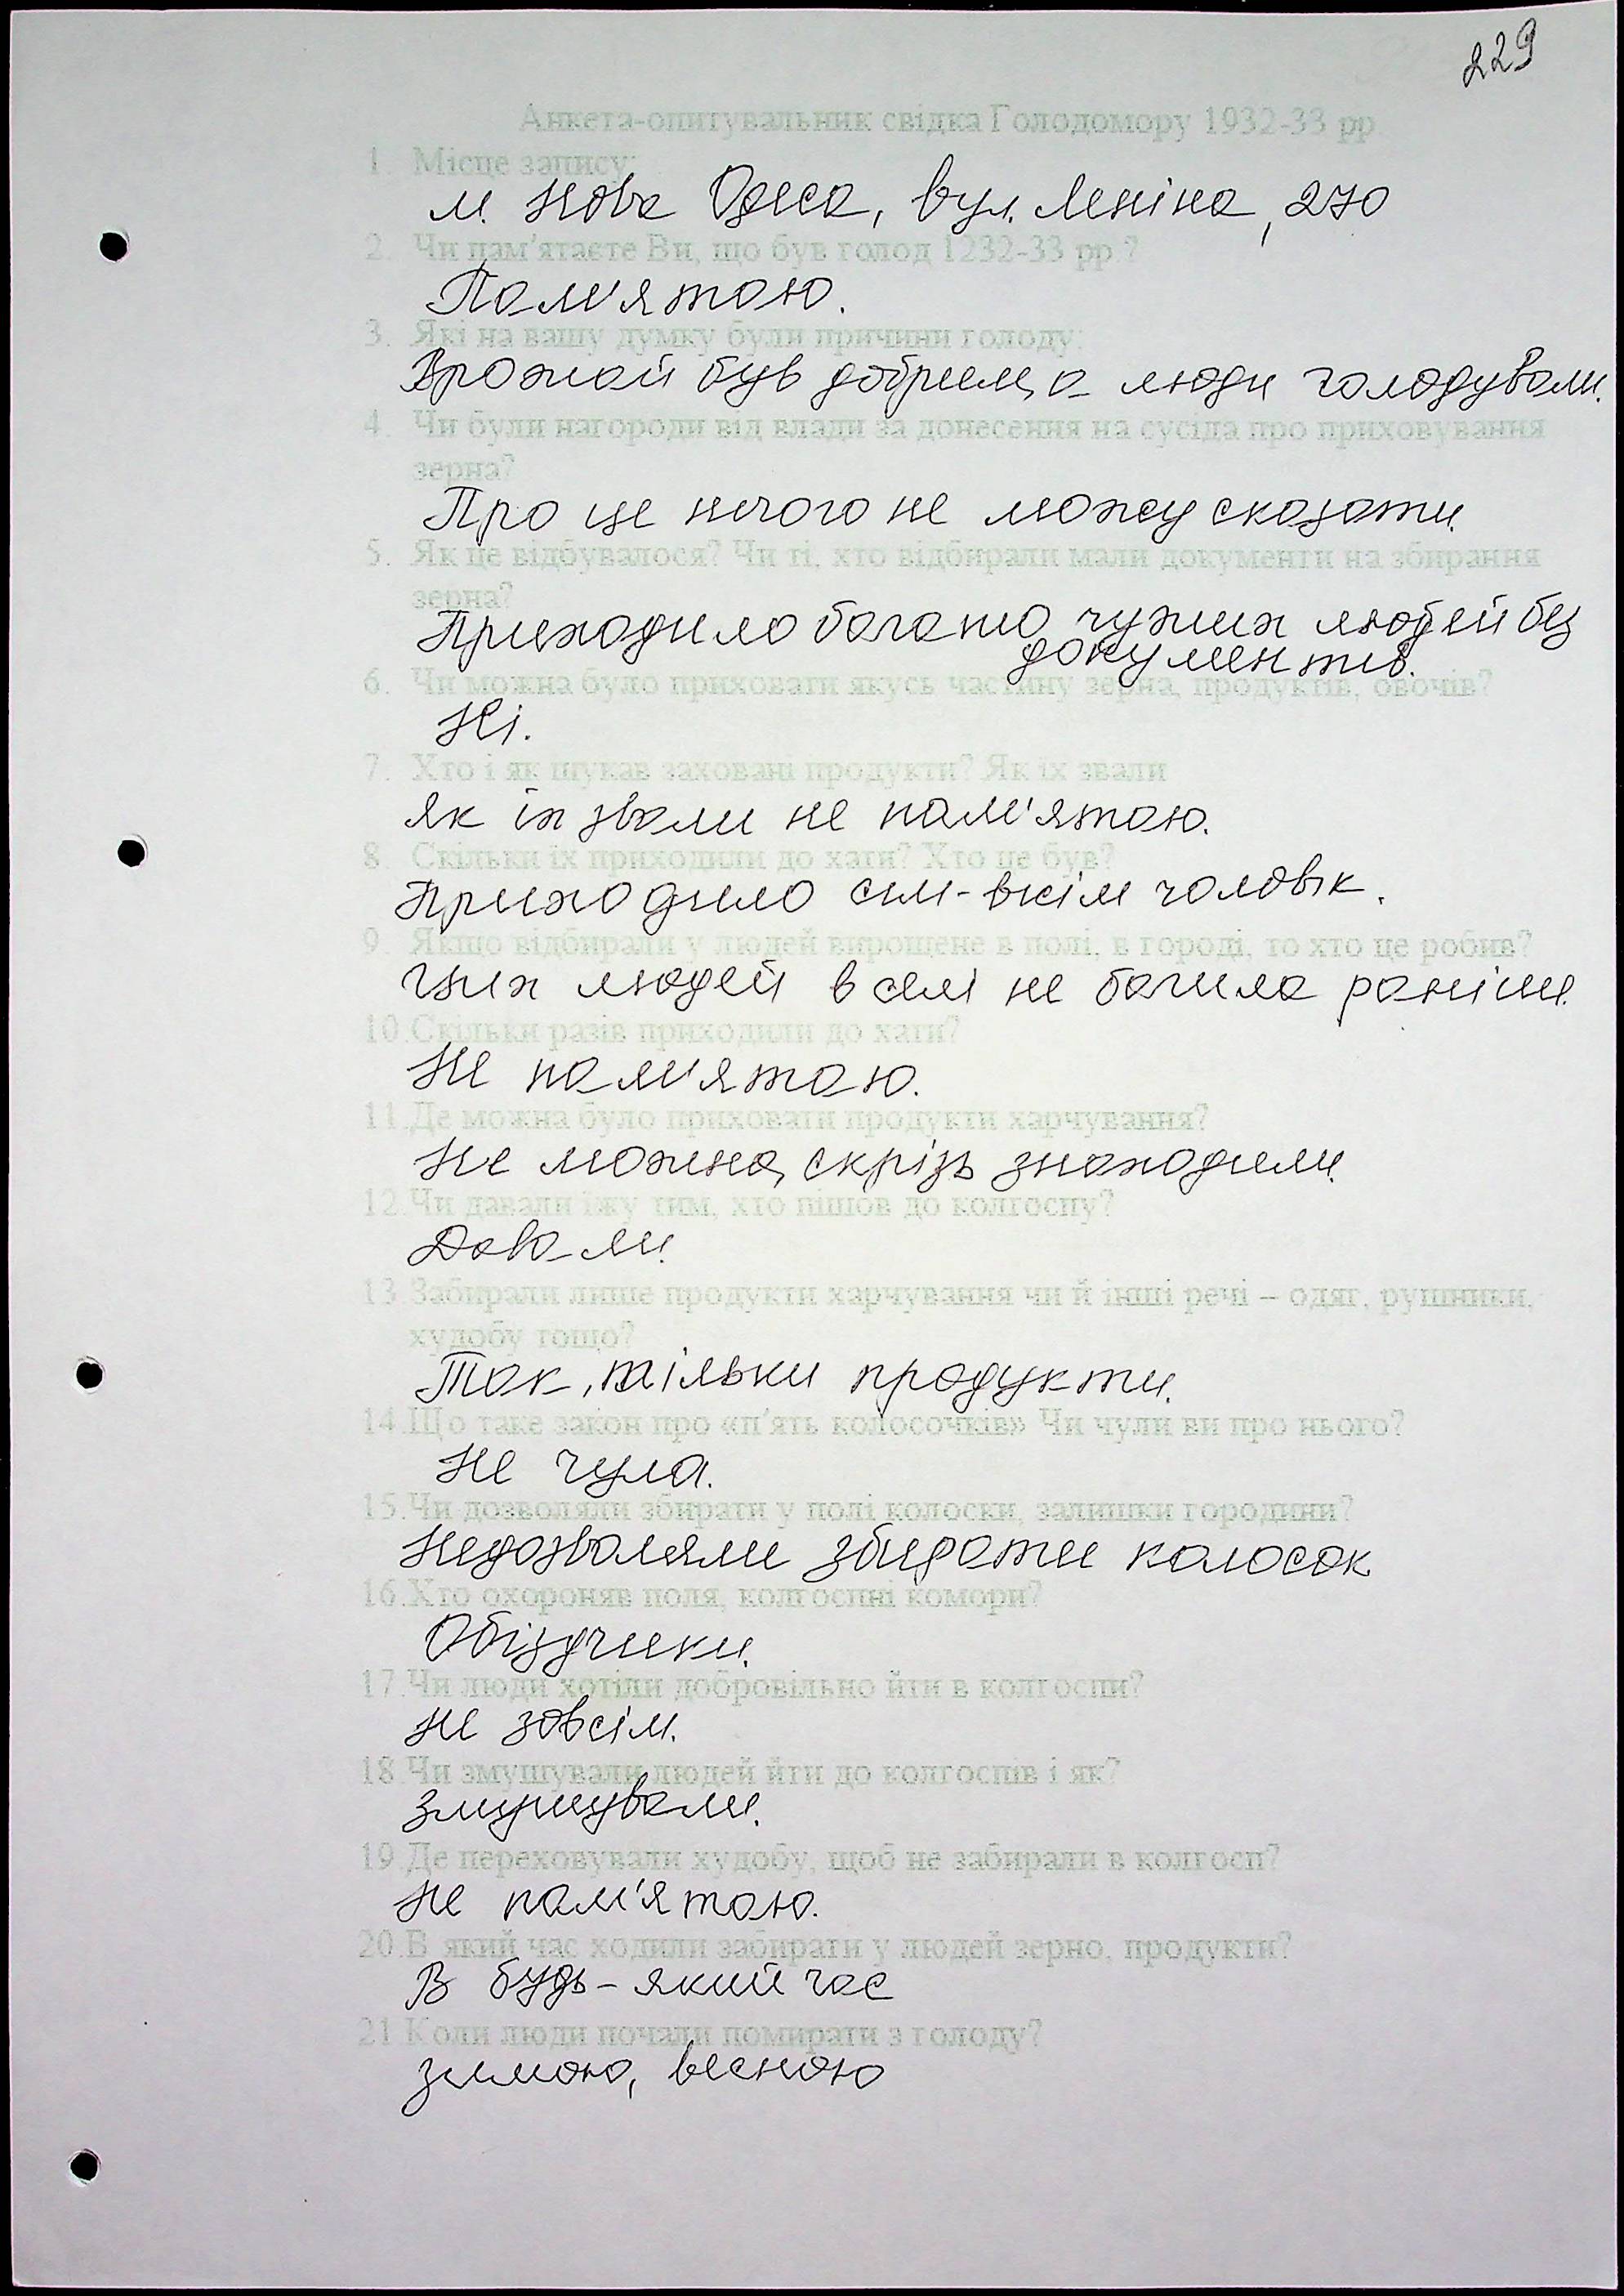 229
Анкета-опитувальник свідка Голодомору 1932-33 рр
1. Місце запису:
м. Нова Одеса, вул. Леніна, 270
2. Чи пам'ятаєте Ви, що був голод 1232-33 рр.?
Пам'ятаю.
3. Які на вашу думку були причини голоду:
Врожай був добрим, а люди голодували.
4. Чи були нагороди від влади за донесення на сусіда про приховування
зерна?
Про це нічого не можу сказати.
5. Як це відбувалося? Чи ті, хто відбирали мали документи на збирання
зерна?
Приходило багато чужих людей без
документів.
6. Чи можна було приховати якусь частину зерна, продуктів, овочів?
Ні.
7. Хто і як шукав заховані продукти? Як їх звали
як їх звали не пам'ятаю.
8. Скільки їх приходили до хати? Хто це був?
Приходило сім-вісім чоловік.
9. Якщо відбирали у людей вирощене в полі, в городі, то хто це робив?
Цих людей в селі не бачила раніше.
10. Скільки разів приходили до хати?
Не пам'ятаю.
11. Де можна було приховати продукти харчування?
Не можна, скрізь знаходили.
12. Чи давали їжу тим, хто пішов до колгоспу?
Давали.
13. Забирали лише продукти харчування чи й інші речі – одяг, рушники,
худобу тощо?
Так, тільки продукти.
14. Що таке закон про «п'ять колосочків» Чи чули ви про нього?
Не чула.
15. Чи дозволяли збирати у полі колоски, залишки городини?
Недозволяли збирати колосок
16. Хто охороняв поля, колгоспні комори?
Обіздчики.
17. Чи люди хотіли добровільно йти в колгоспи?
Не зовсім.
18. Чи змушували людей йти до колгоспів і як?
Змушували.
19. Де переховували худобу, щоб не забирали в колгосп?
Не пам'ятаю.
20. В який час ходили забирати у людей зерно, продукти?
В будь-який час
21 Коли люди почали помирати з голоду?
зимою, весною